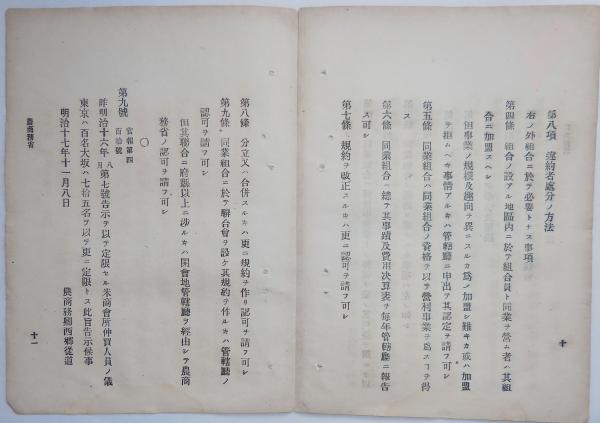 第八項 違約者處分ノ方法
右ノ外組合ニ於テ必要トナス事項
第四條 組合ノ設アル地區内ニ於テ組合員ト同業ヲ營ム者ハ其組
合ニ加盟スヘシ
但事業ノ規模及趣向ヲ異ニスルカ爲ノ加盟シ難キカ或ハ加盟
ヲ拒ムヘキ事情アルキハ管轄廳ニ申出テ其認定ヲ請フ可シ
第五條 同業組合ハ同業組合ノ資格ヲ以テ營利事業ヲ爲スコヲ得
ス
第六條 同業組合ハ總テ其事蹟及費用決算表ヲ每年管轄廳ニ報告
スヘシ
第七條 規約ヲ改正スルキハ更ニ認可ヲ請フ可シ
十
第八條 分立又ハ合併スルキハ更ニ規約ヲ作リ認可ヲ請フ可シ
第九條 同業組合ニ於テ聯合會ヲ設ケ其規約ヲ作ルキハ管轄廳ノ
認可ヲ請フ可シ
但其聯合ニ府縣以上ニ涉ルキハ開會地管轄廳ヲ經由シテ農商
務省ノ認可ヲ請フ可シ
〇
第九號 官報第四百拾號
昨明治十六年八月第七號告示ヲ以テ定限セル米商會所仲買人員ノ儀
東京ハ百名大坂ハ七拾五名ヲ以テ更ニ定限トス此旨告示候事
明治十七年十一月八日
農商務卿西鄕從道
農商務省
十一